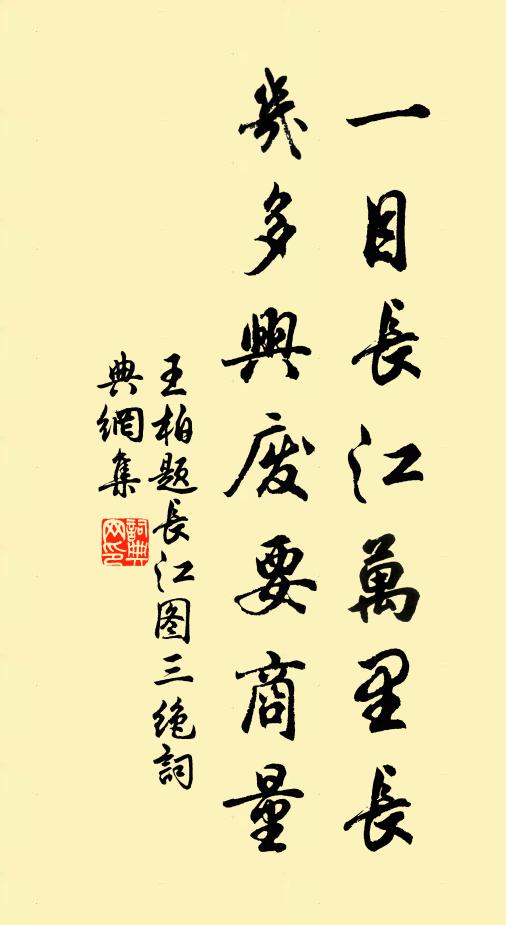 一目長江萬里長
幾多興废要商量
王柏題長江图三绝詞
典網集
詞典
网印